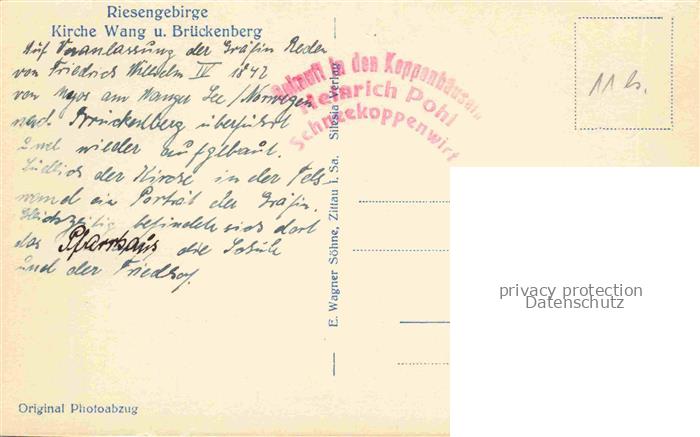 Riesengebirge
Kirche Wang u. Brückenberg
Auf Veranlassung der Gräfin Reden
von Friedrich Wilhelm IV 1842
von am Wanger See / Norwegen
nach Brückenberg überführt
und wieder aufgebaut.
Südlich der Kirche in der Fels-
wand ein Porträt der Gräfin.
Gleichzeitig befinden sich dort
das Pfarrhaus die Schule
und der Friedhof.
Gekauft in den Koppenhäusern
Heinrich Pohl
Schneekoppenwirt
11 b.
E. Wagner Söhne, Zittau i. Sa. Silesia Verlag
privacy protection
Datenschutz
Original Photoabzug